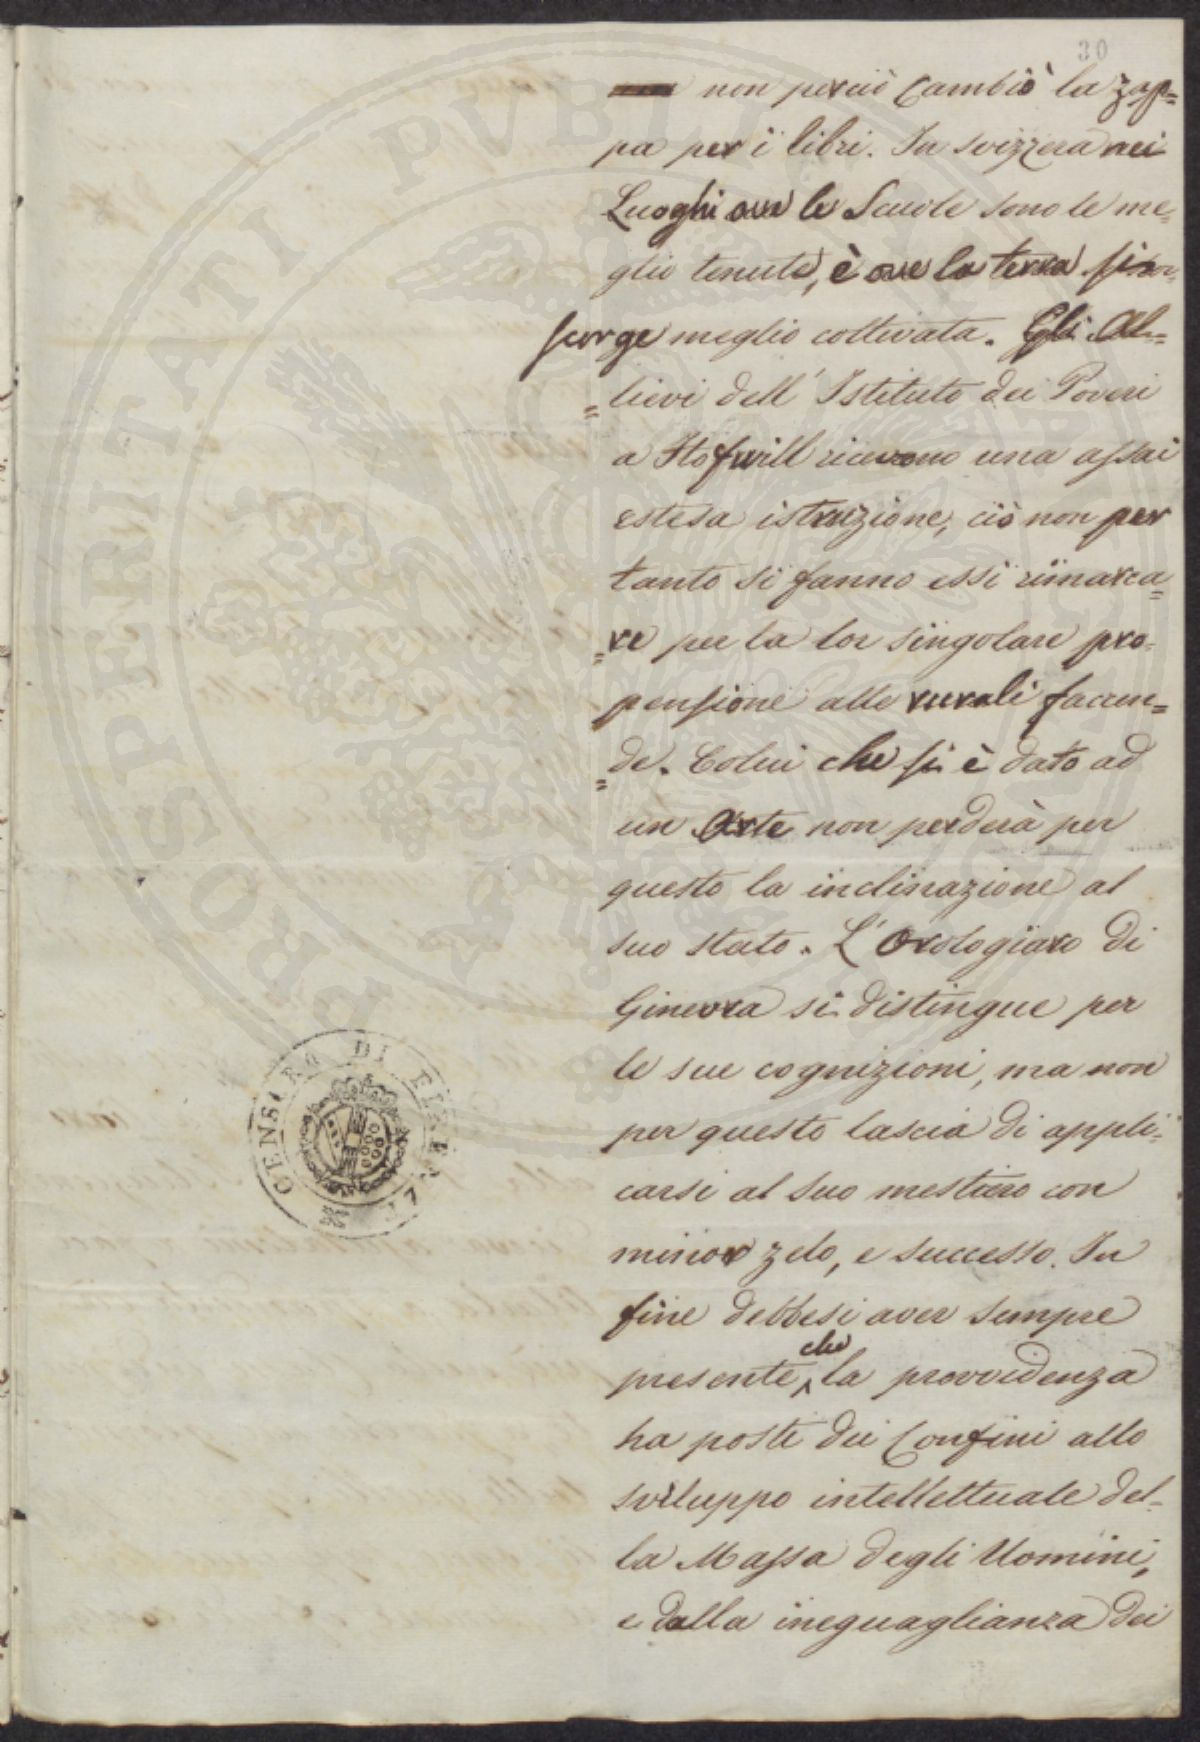 30
non perciò cambiò la zap=
pa per i libri. In svizzera nei
Luoghi ove le Scuole sono le me=
glio tenute, è ove la terra si
scorge meglio coltivata. Gli Al=
=lievi dell' Istituto dei Poveri
a Hofwill ricevono una assai
estesa istruzione, ciò non per
tanto si fanno essi rimarca=
=re per la lor singolare pro=
pensione alle rurali faccen=
=de. Colui che si è dato ad
un Arte non perderà per
questo la inclinazione al
suo stato. L' Orologiaro di
Ginevra si distingue per
le sue cognizioni, ma non
per questo lascia di appli=
carsi al suo mestiero con
minor zelo, e successo. In
fine debbesi aver sempre
che
presente la provvidenza
ha posti dei Confini allo
sviluppo intellettuale del=
la Massa degli Uomini,
e dalla ineguaglianza dei
PROSPERITATI PVBLICAE
CENSORE DI FIRENZE